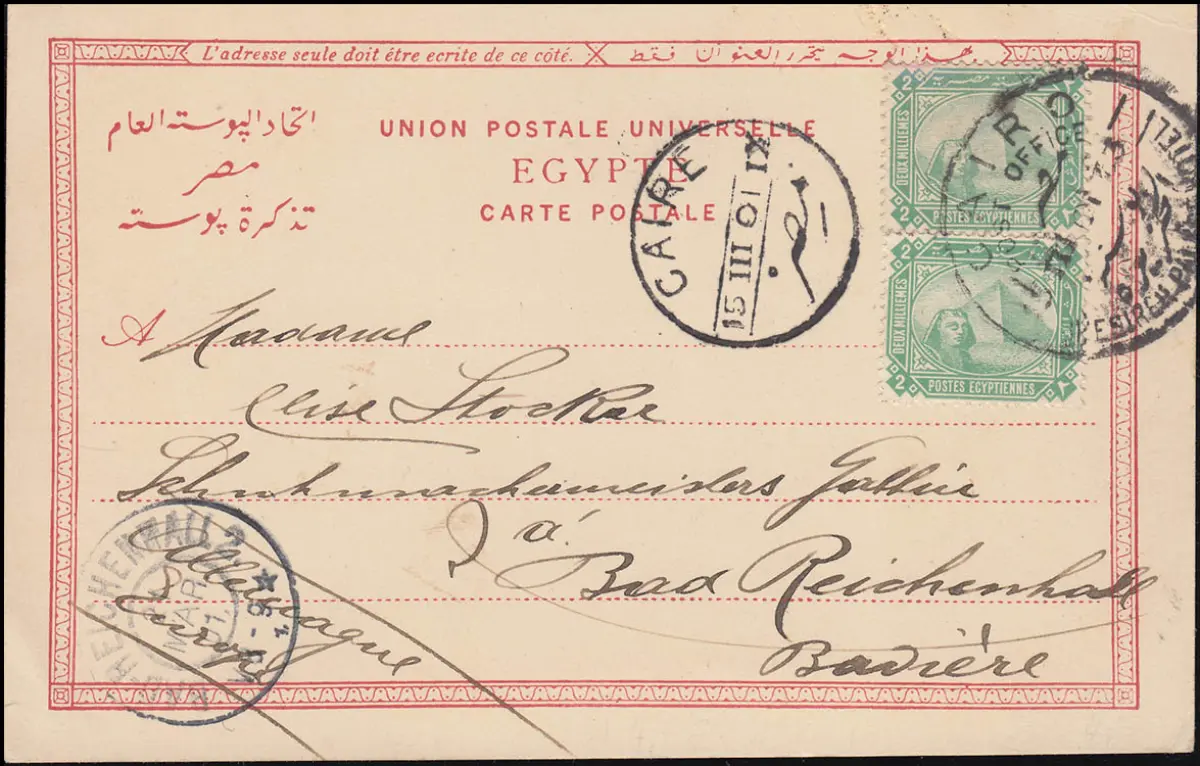 L'adresse seule doit être ecrite de ce côté.
بهذا الوجه يحرر العنوان فقط
اتحاد البوسته العام
مصر
تذكرة بوسته
UNION POSTALE UNIVERSELLE
EGYPTE
CARTE POSTALE
2
DEUX MILLIEMES
2
POSTES EGYPTIENNES
2
DEUX MILLIEMES
2
POSTES EGYPTIENNES
CAIRE
15 III 01 IX
مصر
CAIRO
POST OFFICE
A Madame
Elise Stocker
Schuhmachermeisters Gattin
à
Bad Reichenhall
Bavière
Allemagne
Europe
BAD-REICHENHALL 2
MAR
01